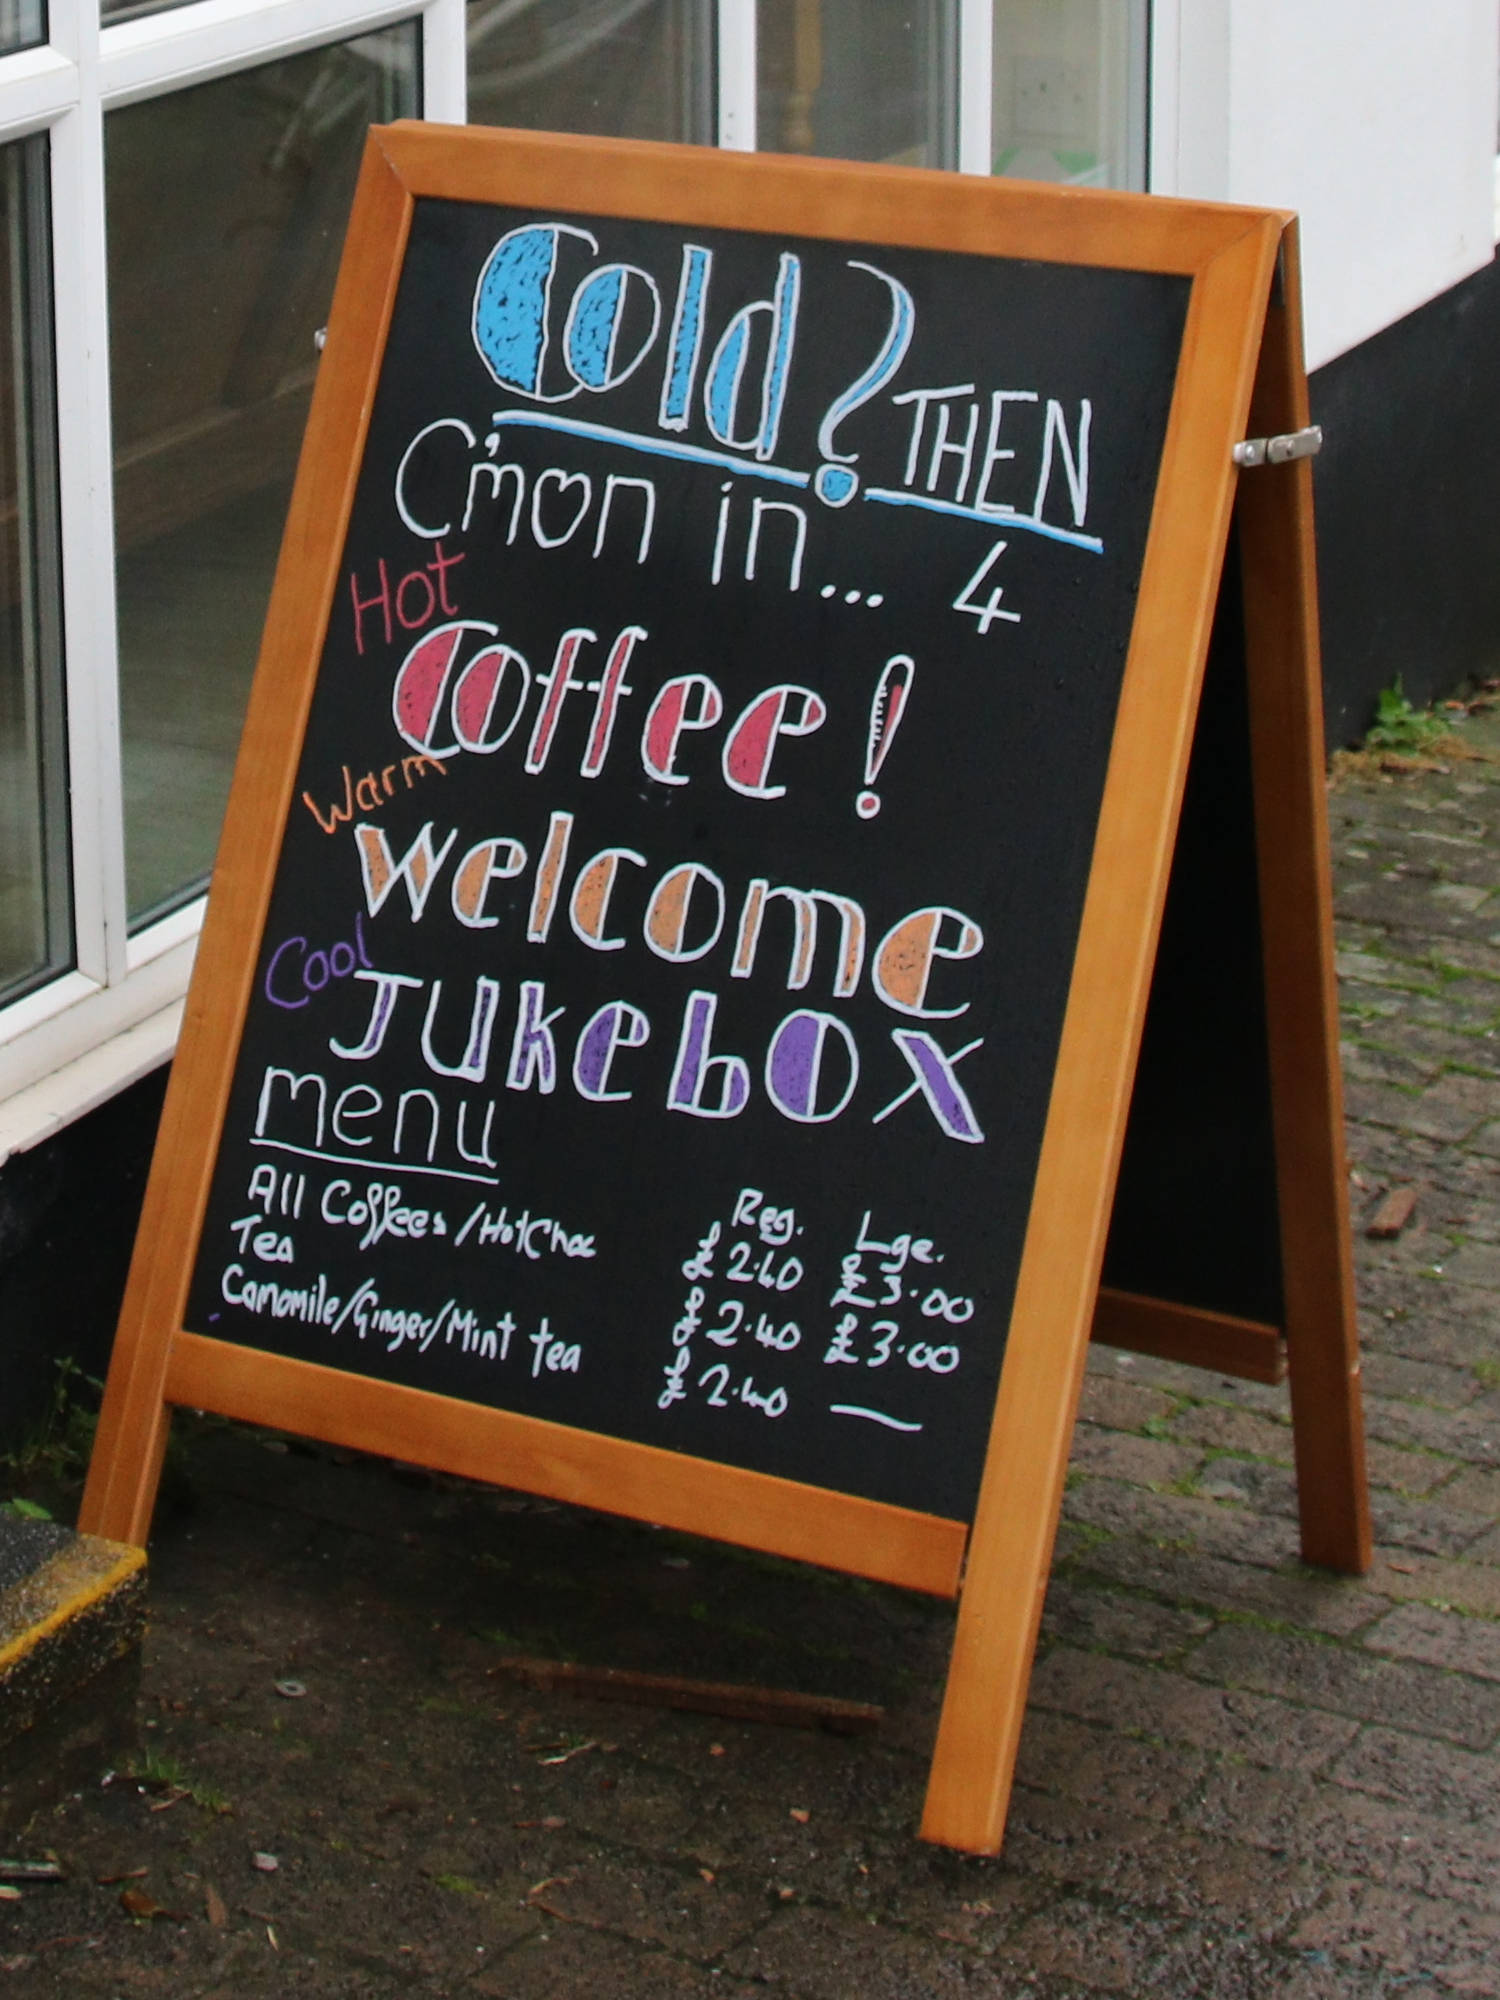 Cold? THEN
C'mon in... 4
Hot
Coffee!
Warm
welcome
Cool
JUKEBOX
menu
Reg. Lge.
All Coffees/HotChoc £2.40 £3.00
Tea £2.40 £3.00
Camomile/Ginger/Mint tea £2.40 —